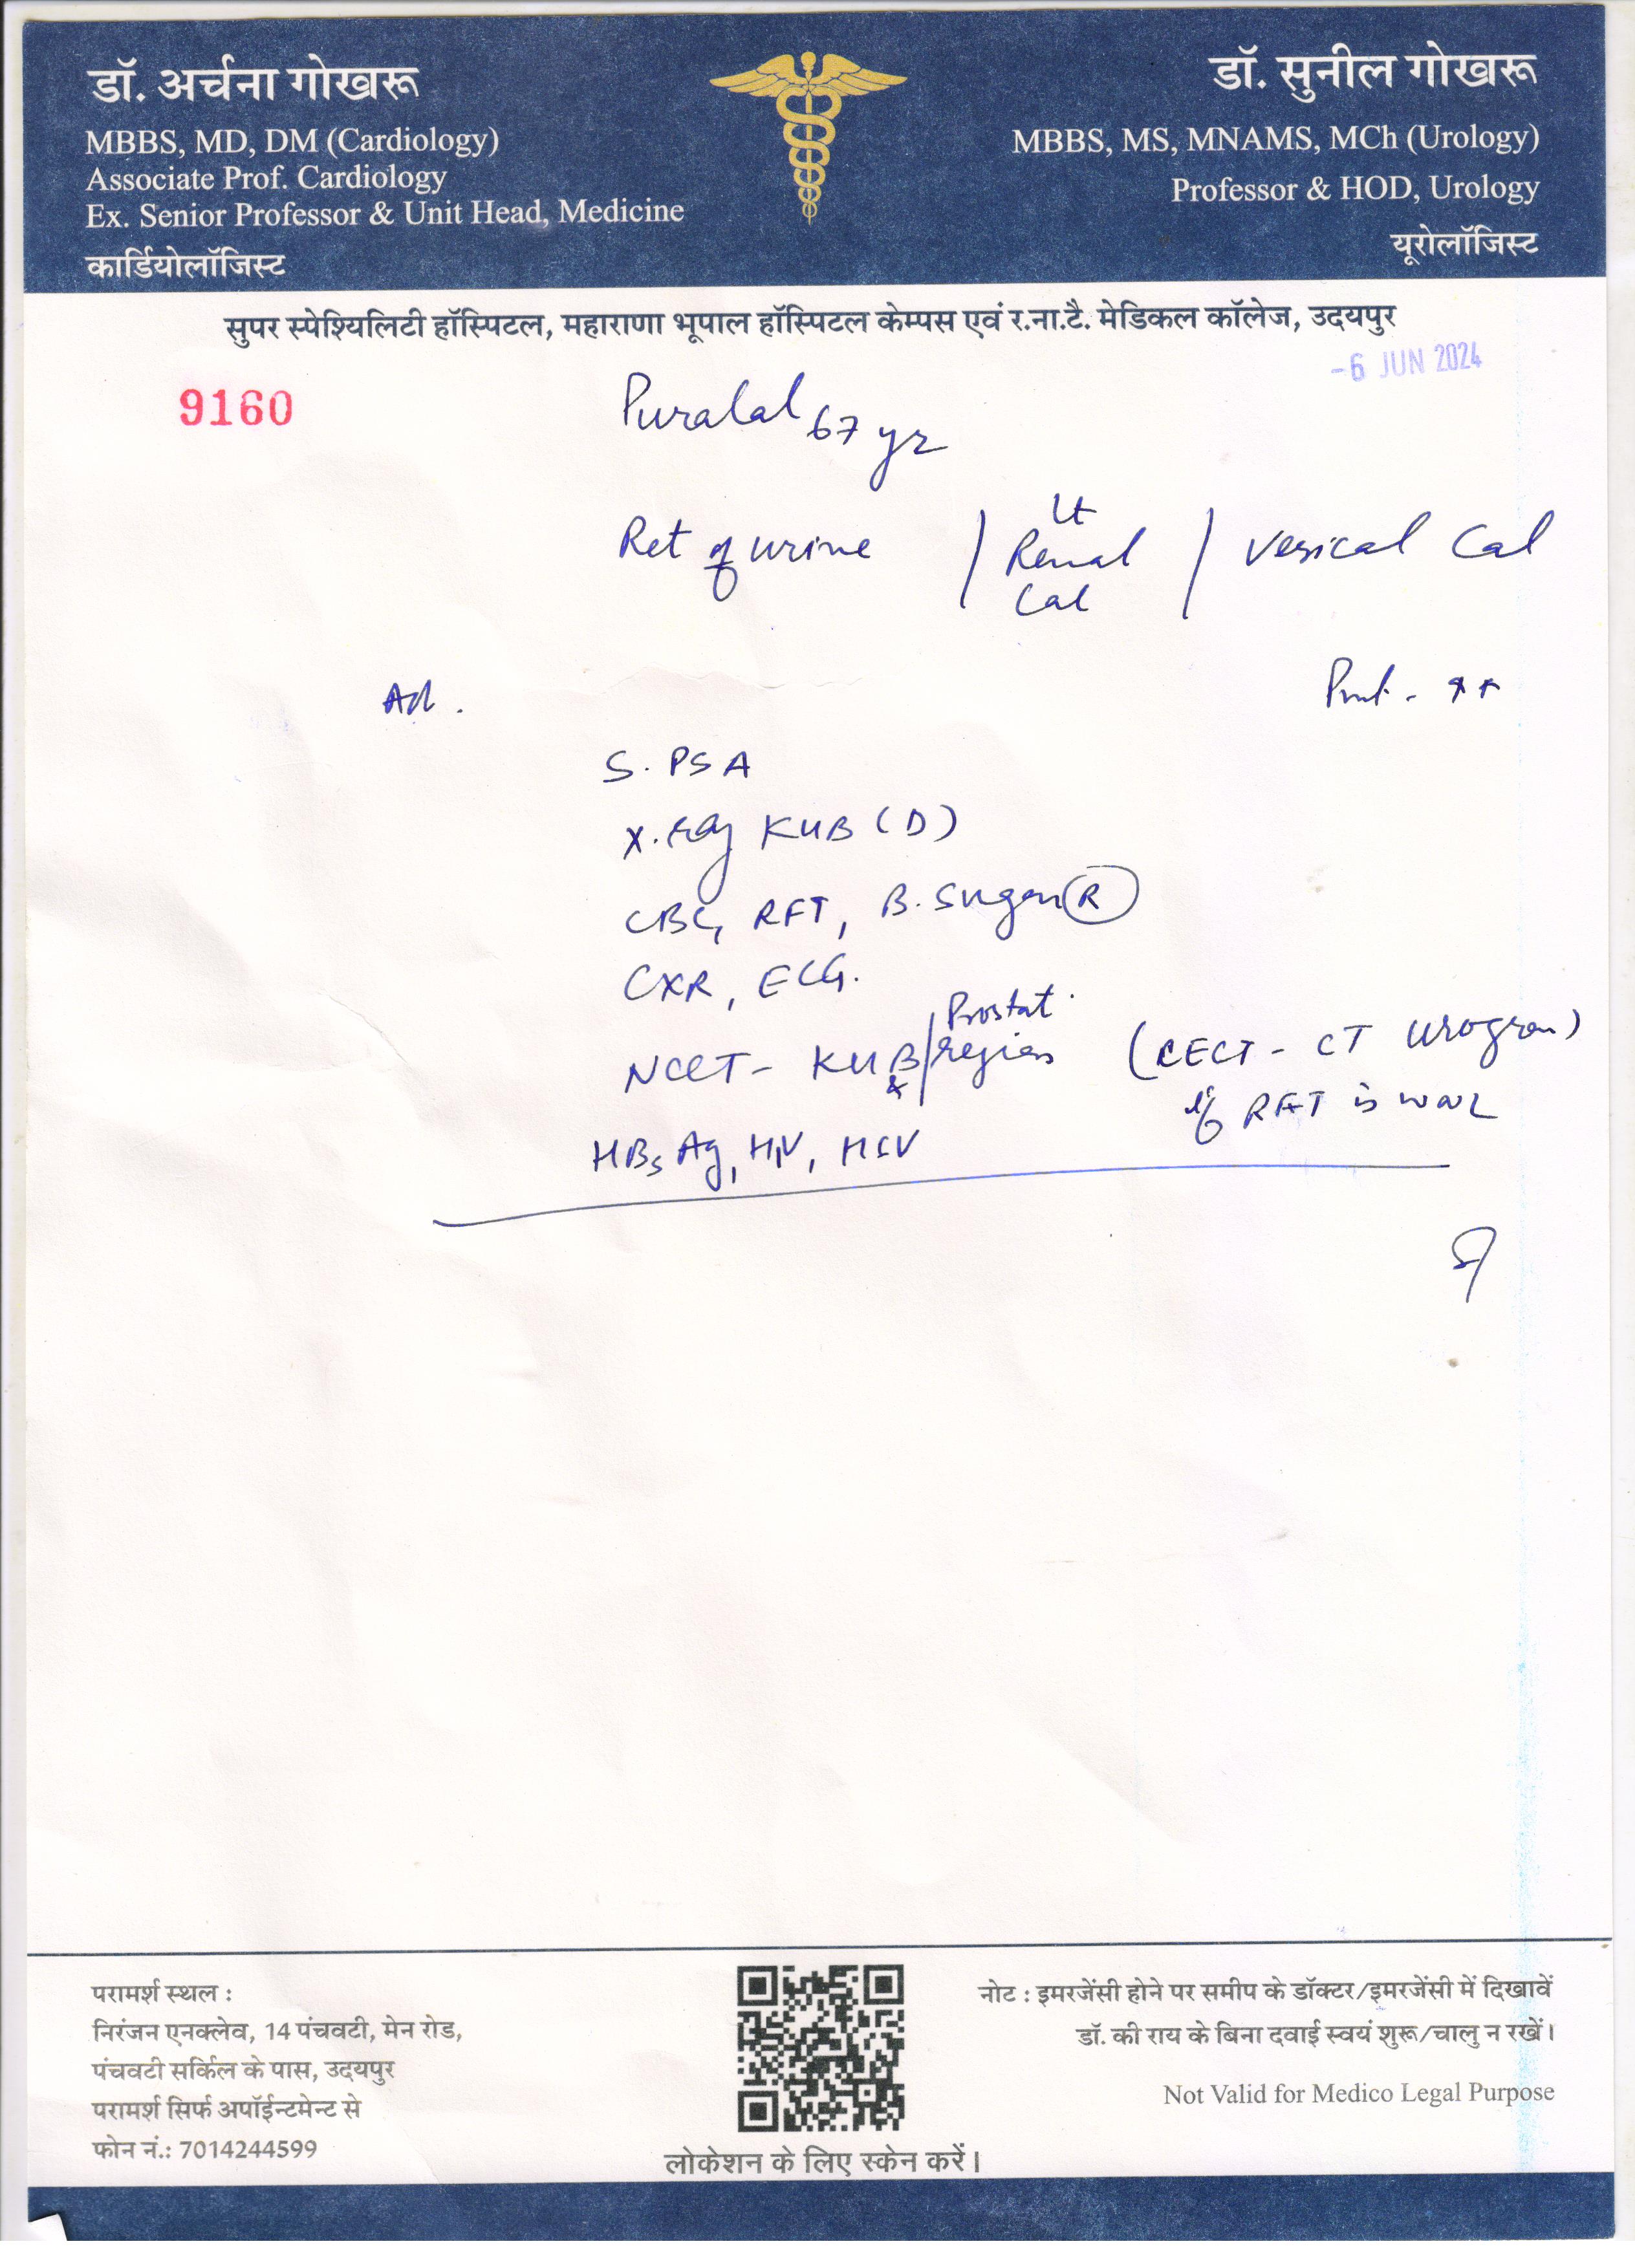 डॉ. अर्चना गोखरू
MBBS, MD, DM (Cardiology)
Associate Prof. Cardiology
Ex. Senior Professor & Unit Head, Medicine
कार्डियोलॉजिस्ट
डॉ. सुनील गोखरू
MBBS, MS, MNAMS, MCh (Urology)
Professor & HOD, Urology
यूरोलॉजिस्ट
सुपर स्पेश्यिलिटी हॉस्पिटल, महाराणा भूपाल हॉस्पिटल केम्पस एवं र.ना.टै. मेडिकल कॉलेज, उदयपुर
-6 JUN 2024
9160
Puralal 67 yr
Ret of urine / Lt Renal Cal / Vesical Cal
Ad.
S. PSA
X.ray KUB (D)
CBC, RFT, B. Sugar (R)
CXR, ECG.
NCCT - KUB & / Prostat. region (CECT - CT Urogram)
if RFT is WNL
HBsAg, HIV, HCV
परामर्श स्थल :
निरंजन एनक्लेव, 14 पंचवटी, मेन रोड,
पंचवटी सर्किल के पास, उदयपुर
परामर्श सिर्फ अपॉईन्टमेन्ट से
फोन नं.: 7014244599
लोकेशन के लिए स्केन करें।
नोट : इमरजेंसी होने पर समीप के डॉक्टर/इमरजेंसी में दिखावें
डॉ. की राय के बिना दवाई स्वयं शुरू/चालु न रखें।
Not Valid for Medico Legal Purpose